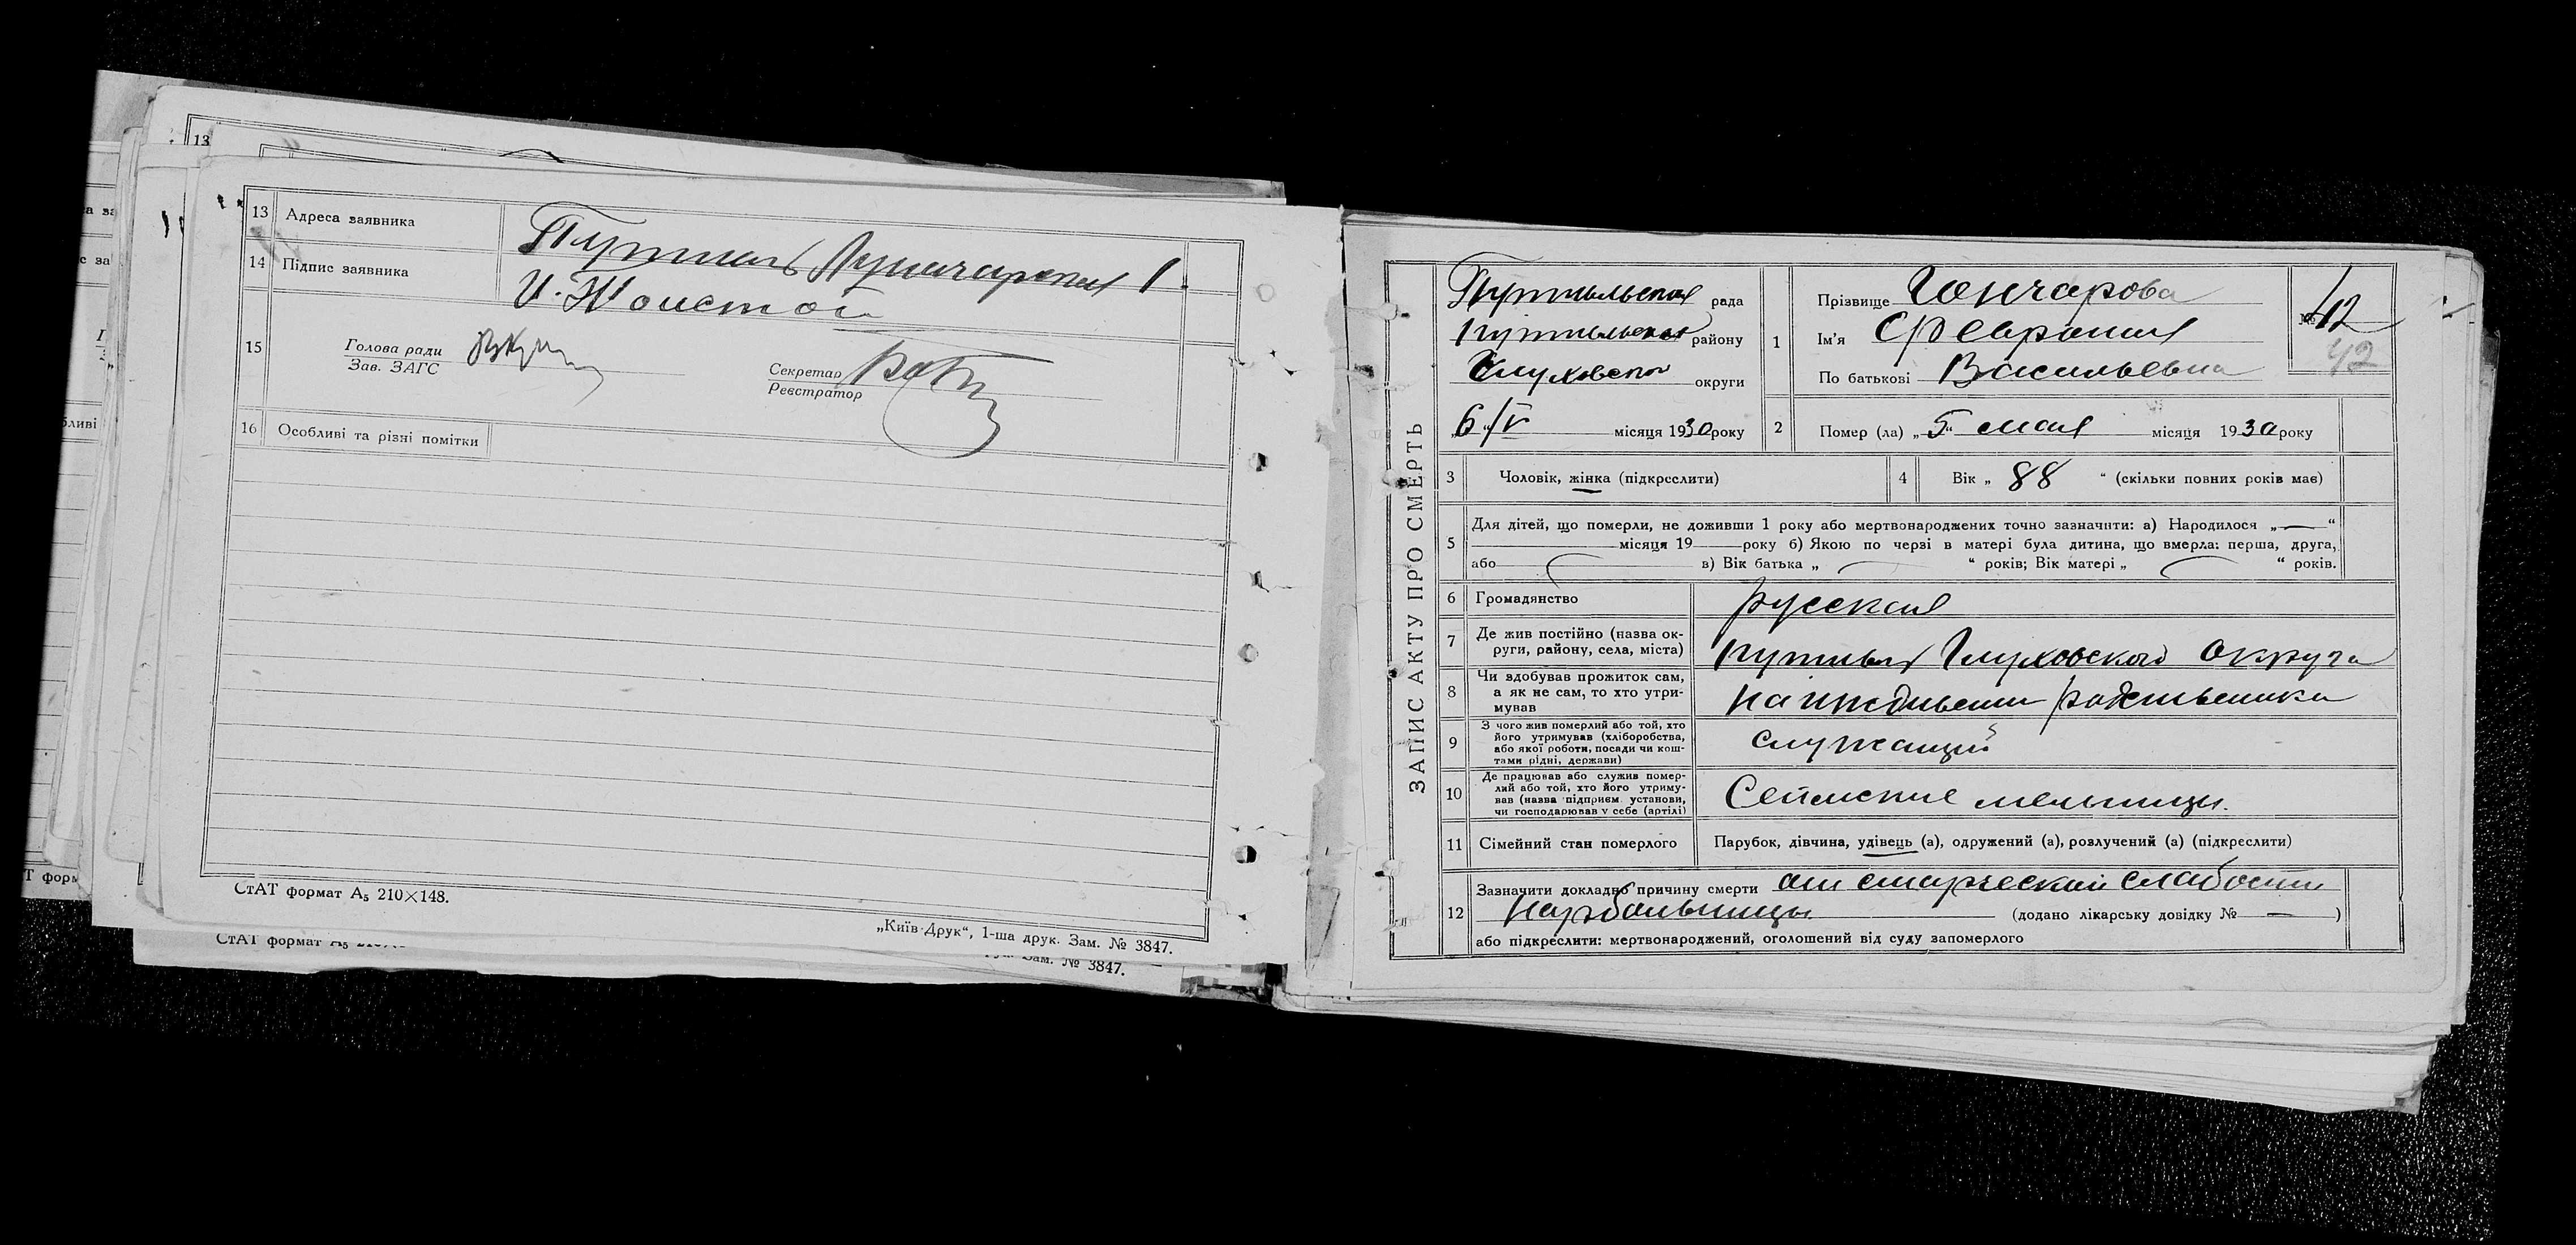 13
13 Адреса заявника Путивль Луначарская 1.
14 Підпис заявника И. Толстой
15 Голова ради
Зав. ЗАГС
Секретар
Реєстратор
16 Особливі та різні помітки
СтАТ формат А₅ 210×148.
„Київ-Друк“, 1-ша друк. Зам. № 3847.
СтАТ формат А₅
Зам. № 3847.
ЗАПИС АКТУ ПРО СМЕРТЬ
Путивльская рада
Путивльская району
Глуховской округи
„6“/V місяця 1930 року
1 Прізвище Гончарова
Ім’я Феврония
По батькові Васильевна
№ 42
42
2 Помер (ла) „5“ мая місяця 1930 року
3 Чоловік, жінка (підкреслити)
4 Вік „ 88 “ (скільки повних років має)
5 Для дітей, що померли, не доживши 1 року або мертвонароджених точно зазначити: а) Народилося „—“
місяця 19 — року б) Якою по черзі в матері була дитина, що вмерла: перша, друга,
або в) Вік батька „ — “ років; Вік матері „ — “ років.
6 Громадянство русская
7 Де жив постійно (назва ок-
руги, району, села, міста) Путивль Глуховского округа
8 Чи здобував прожиток сам,
а як не сам, то хто утри-
мував на иждивении родственника
9 З чого жив померлий або той, хто
його утримував (хліборобства,
або якої роботи, посади чи кош-
тами рідні, держави) служащий
10 Де працював або служив помер-
лий або той, хто його утриму-
вав (назва підприєм. установи,
чи господарював у себе (артілі) Сеймские мельницы.
11 Сімейний стан померлого Парубок, дівчина, удівець (а), одружений (а), розлучений (а) (підкреслити)
12 Зазначити докладно причину смерти от старческой слабости
(додано лікарську довідку № — )
або підкреслити: мертвонароджений, оголошений від суду запомерлого